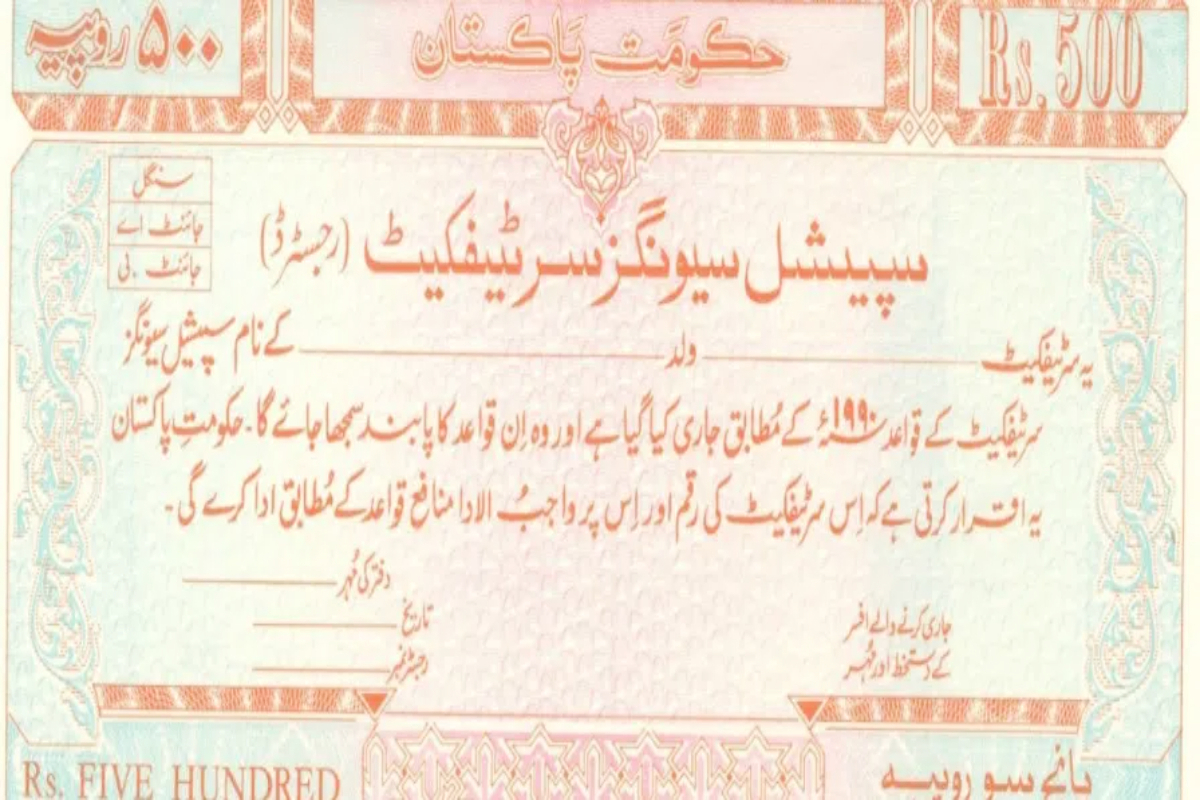 ۵۰۰ روپیہ
حکومَت پَاکستان
Rs. 500
سنگل
جائنٹ اے
جائنٹ ۔ بی
سپیشل سیونگز سرٹیفکیٹ (رجسٹرڈ)
یہ سرٹیفکیٹ ولد کے نام سپیشل سیونگز
سرٹیفکیٹ کے قواعد ۱۹۹۰ء کے مُطابق جاری کیا گیا ہے اور وہ اِن قواعد کا پابند سمجھا جائے گا۔ حکومتِ پاکستان
یہ اقرار کرتی ہے کہ اِس سرٹیفکیٹ کی رقم اور اِس پر واجبُ الادا منافع قواعد کے مُطابق ادا کرے گی۔
دفتر کی مُہر
تاریخ
رجسٹر نمبر
جاری کرنے والے افسر
کے دستخط اور مُہر
Rs. FIVE HUNDRED
پانچ سو روپیہ